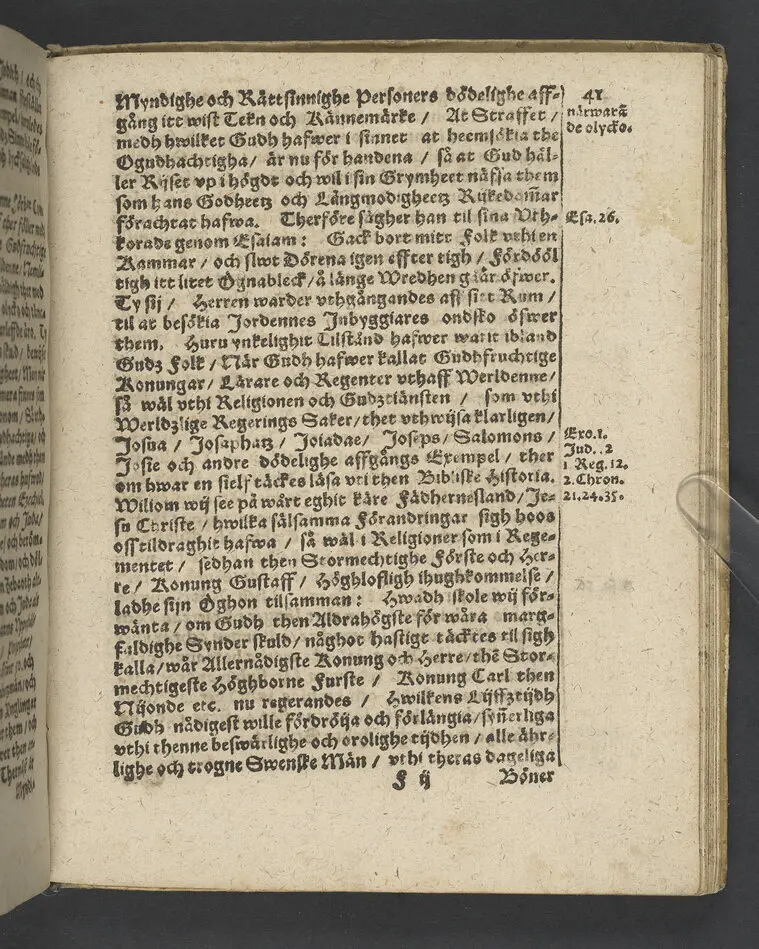 Myndighe och Rättsinnighe Personers dödelighe aff-
gång itt wist Tekn och Kännemärke / At Straffet /
medh hwilket Gudh hafwer i sinnet at heemsökia the
Ogudhachtigha / är nu för handena / så at Gud häl-
ler Rijset vp i högdt och wil i sin Grymheet näfsa them
som hans Godheetz och Långmodigheetz Rijkedom̃ar
förachtat hafwa. Therföre sägher han til sina Vth-
korade genom Esaiam: Gack bort mitt Folk vthi en
Kammar / och slwt Dörena igen effter tigh / Fördööl
tigh itt litet Ögnableck / å länge Wredhen går öfwer.
Ty sij / Herren warder vthgångandes aff sitt Rum /
til at besökia Jordennes Inbyggiares ondsko öfwer
them. Huru ynkelighit Tilstånd hafwer warit ibland
Gudz Folk / När Gudh hafwer kallat Gudhfruchtige
Konungar / Lärare och Regenter vthaff Werldenne /
så wäl vthi Religionen och Gudztiänsten / som vthi
Werldzlige Regerings Saker / thet vthwijsa klarligen /
Josua / Josaphatz / Joiadae / Josephs / Salomons /
Josie och andre dödelighe affgångs Exempel / ther
om hwar en sielf täckes läsa vti then Bibliske Historia.
Wiliom wij see på wårt eghit käre Fädhernesland / Je-
su Christe / hwilka sälsamma Förandringar sigh hoos
oss tildraghit hafwa / så wäl i Religioner som i Rege-
mentet / sedhan then Stormechtighe Förste och Her-
re / Konung Gustaff / Höghlofligh ihughkommelse /
ladhe sijn Öghon tilsamman: Hwadh skole wij för-
wänta / om Gudh then Aldrahögste för wåra marg-
faldighe Synder skuld / någhot hastigt täcktes til sigh
kalla / wår Allernådigste Konung och Herre / thẽ Stor-
mechtigeste Höghborne Furste / Konung Carl then
Nijonde etc. nu regerandes / Hwilkens Lijffztijdh
Gudh nådigest wille fördröija och förlängia / syñerliga
vthi thenne beswärlighe och orolighe tijdhen / alle ähr-
lighe och trogne Swenske Män / vthi theras dageliga
F ij Böner
41
närwarã
de olycko.
Esa. 26.
Exo. 1.
Jud. . 2
1 Reg. 12.
2. Chron.
21. 24. 35.